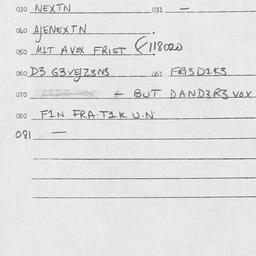 030 NEXTN 031 —
040 AJENEXTN
050 MIT A VOX FRIET (118020
060 D3 G3VEJZ3NS 061 FRI3D1K3
070 + BUT DAND3R3 VOX
080 F1N FRA.T1K U.N
081 —